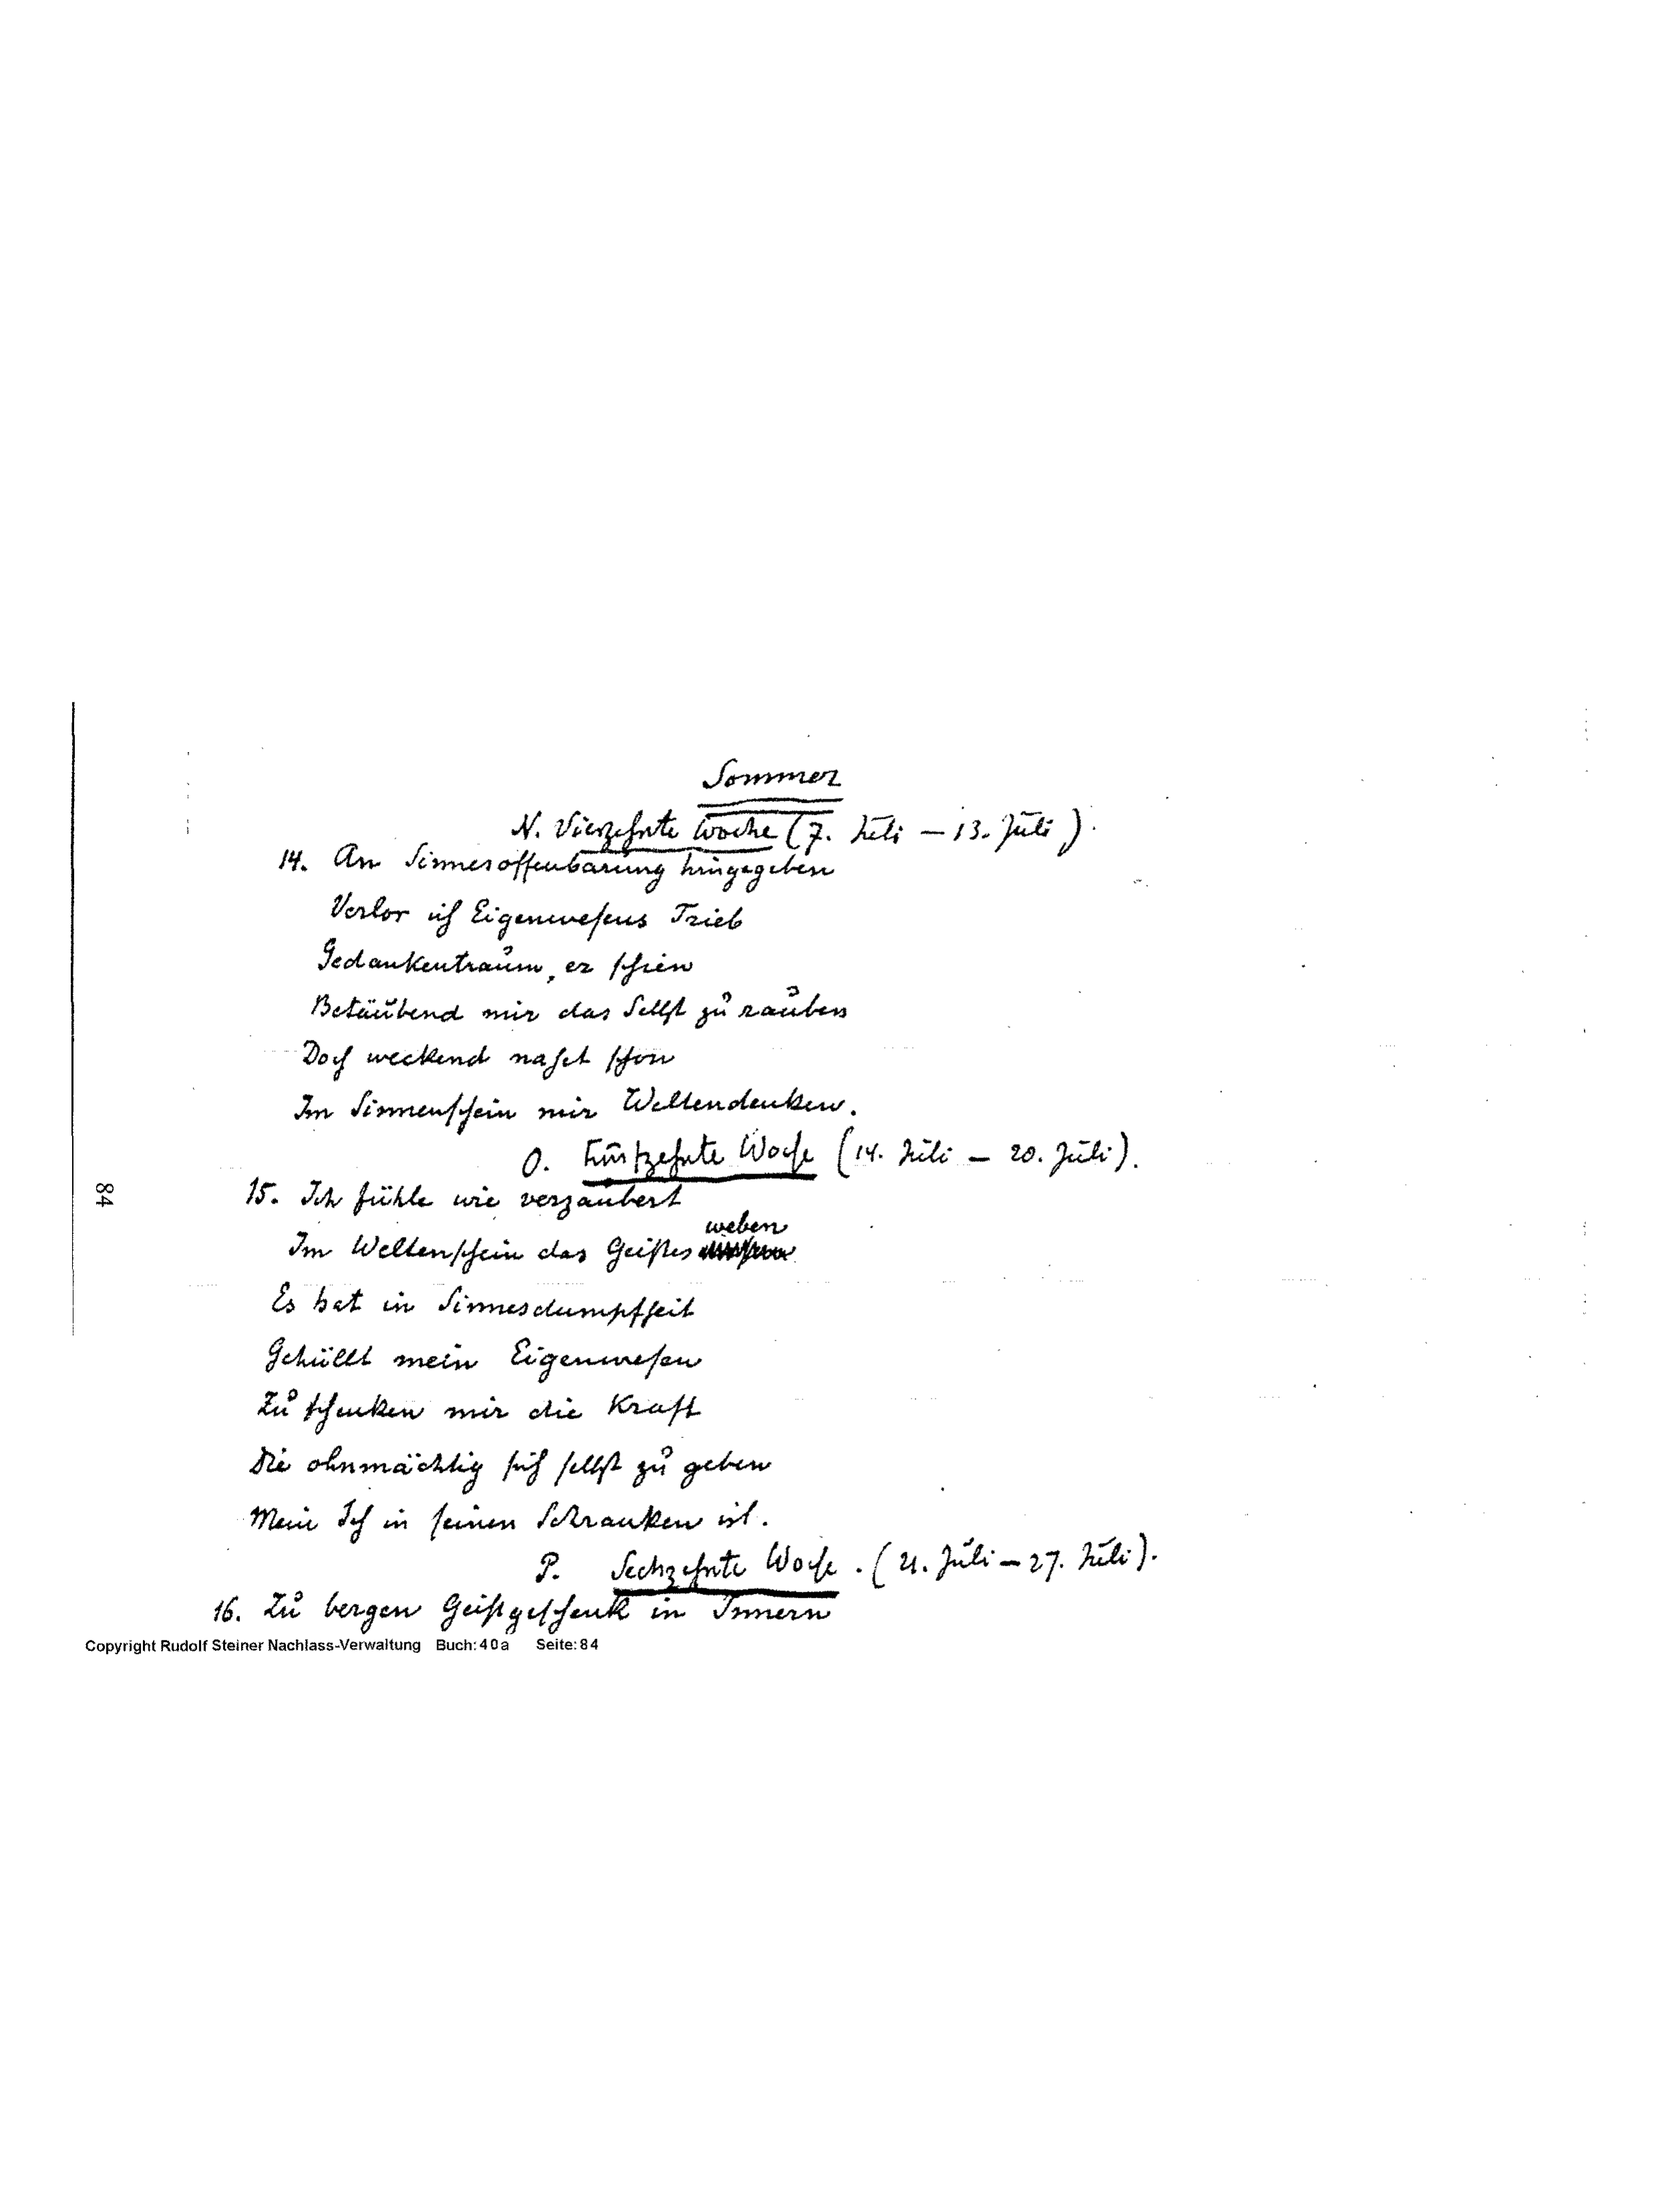 Sommer
N. Vierzehnte Woche (7. Juli – 13. Juli).
14. An Sinnesoffenbarung hingegeben
Verlor ich Eigenwesens Trieb
Gedankentraum, er schien
Betäubend mir das Selbst zu rauben
Doch weckend nahet schon
Im Sinnenschein mir Weltendenken.
O. Fünfzehnte Woche (14. Juli – 20. Juli).
15. Ich fühle wie verzaubert
weben
Im Weltenschein das Geistes
Es hat in Sinnesdumpfheit
Gehüllt mein Eigenwesen
Zu schenken mir die Kraft
Die ohnmächtig sich selbst zu geben
Mein Ich in seinen Schranken ist.
P. Sechzehnte Woche. (21. Juli – 27. Juli).
16. Zu bergen Geistgeschenk in Innern
84
Copyright Rudolf Steiner Nachlass-Verwaltung Buch: 40a Seite: 84